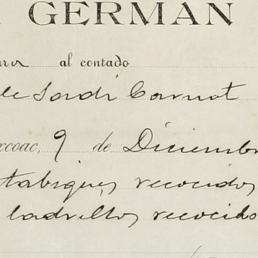 GERMAN
al contado
de Sardi Carnot
xcoac, 9 de Diciembr
tabiques recocidos
ladrillos recocido